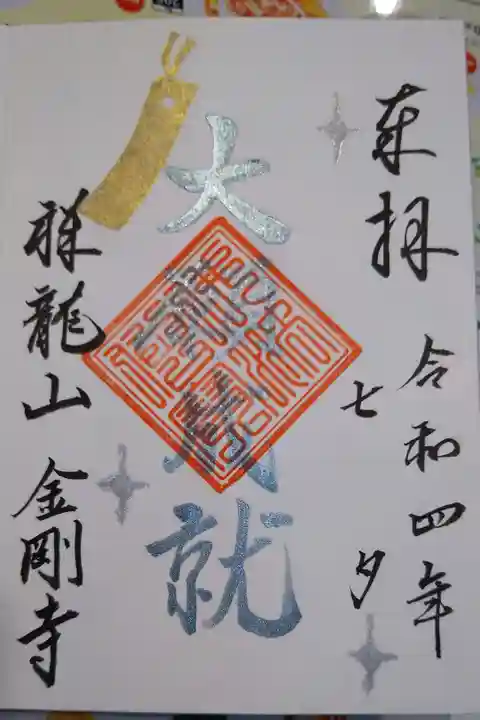 奉拝
令和四年
七夕
大願成就
祥龍山 金剛寺